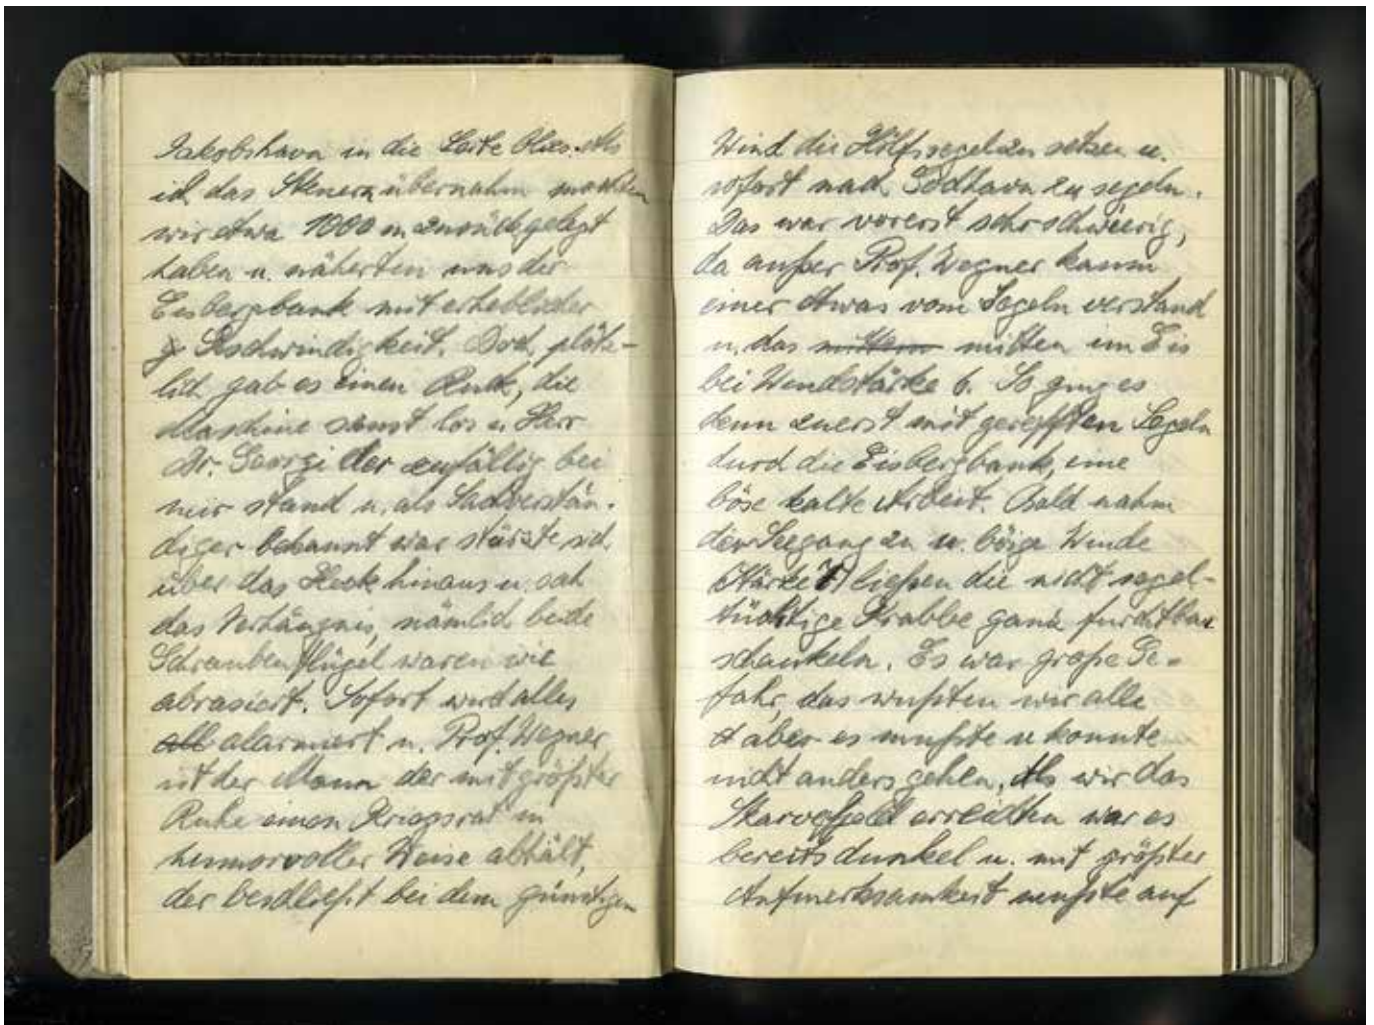 Jakobshavn in die Seite blies. Als
ich das Steuern übernahm mochten
wir etwa 1000 m zurückgelegt
haben u. näherten uns der
Eisbergbank mit erheblicher
g Geschwindigkeit. Doch plötz-
lich gab es einen Ruck, die
Maschine saust los u. Herr
Dr. Georgi der zufällig bei
mir stand u. als Sachverstän-
diger bekannt war stürzte sich
über das Heck hinaus u. sah
das Verhängnis, nämlich beide
Schraubenflügel waren wie
abrasiert. Sofort wird alles
all alarmiert u. Prof. Wegner
ist der Mann der mit größter
Ruhe einen Kriegsrat in
humorvoller Weise abhält,
der beschließt bei dem günstigen
Wind die Hilfssegel zu setzen u.
sofort nach Godhavn zu segeln.
Das war vorerst sehr schwierig,
da außer Prof. Wegner kaum
einer etwas vom Segeln verstand
u. das mittem mitten im Eis
bei Windstärke 6. So ging es
denn zuerst mit gerefften Segeln
durch die Eisbergbank, eine
böse kalte Arbeit. Bald nahm
der Seegang zu u. böige Winde
Stärke 7 ließen die nicht segel-
tüchtige Krabbe ganz furchtbar
schaukeln. Es war große Ge-
fahr, das wußten wir alle
aber es mußte u konnte
nicht anders gehen. Als wir das
erreichten war es
bereits dunkel u. mit größter
Aufmerksamkeit mußte auf